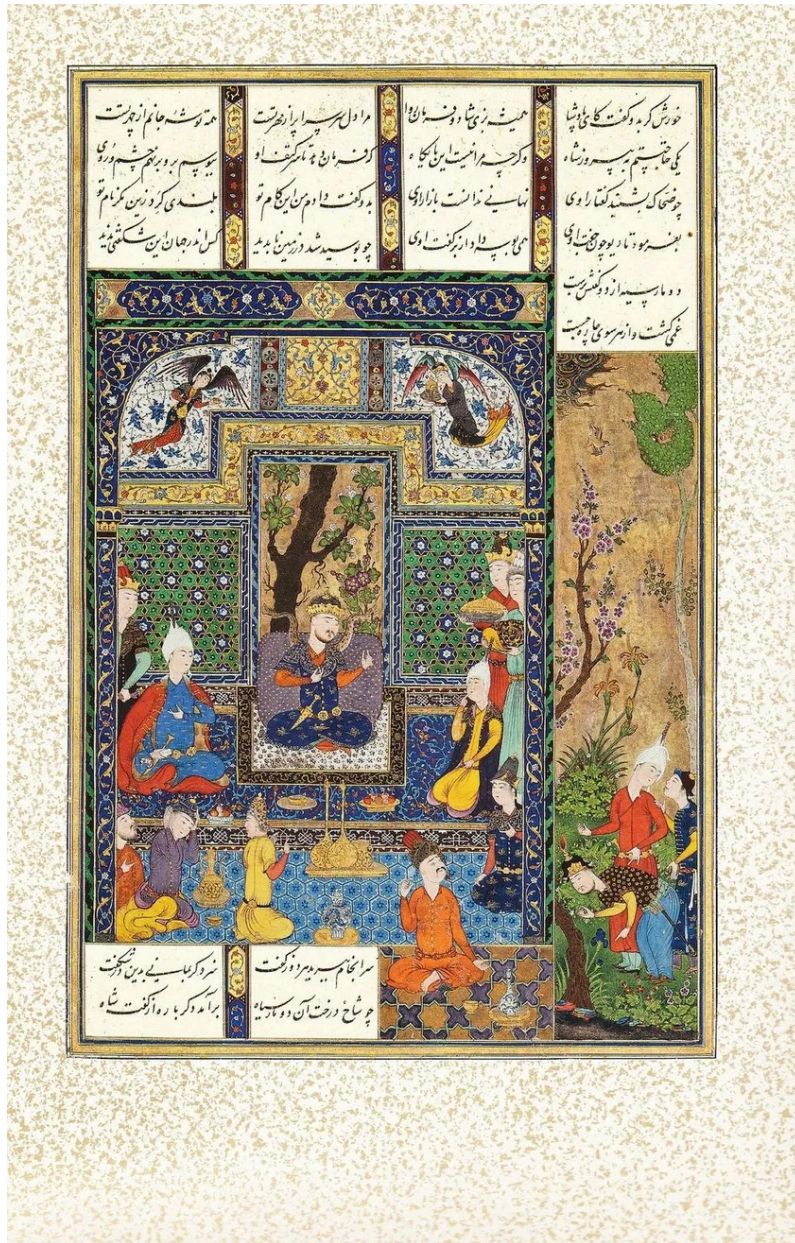 خورش کر بدو گفت کای پادشا همیشه بزی شاد و فرمان روا مرا دل سراسر پر از مهر تست همه توشه جانم از چهر تست
یکی حاجتستم به پیروز شاه وکرچه مرا نیست این پایکاه که فرمان دهد تا سر کتف او ببوسم برو بر نهم چشم و روی
چو ضحاک بشنید کفتار اوی نهانی ندانست بازار اوی بدو کفت دادم من این کام تو بلندی کرد زین مکر نام تو
بفرمود تا دیو چون جفت اوی همی بوسه داد از بر کفت اوی چو بوسید شد در زمین ناپدید کس اندر جهان این شکفتی ندید
دو مار سیه از دو کتفش برست
غمی کشت و از هر سوی چاره جست
سرانجام ببرید هر دو ز کفت سزد کر بمانی بدین در شکفت
چو شاخ درخت آن دو مار سیاه برآمد دکر باره از کفت شاه